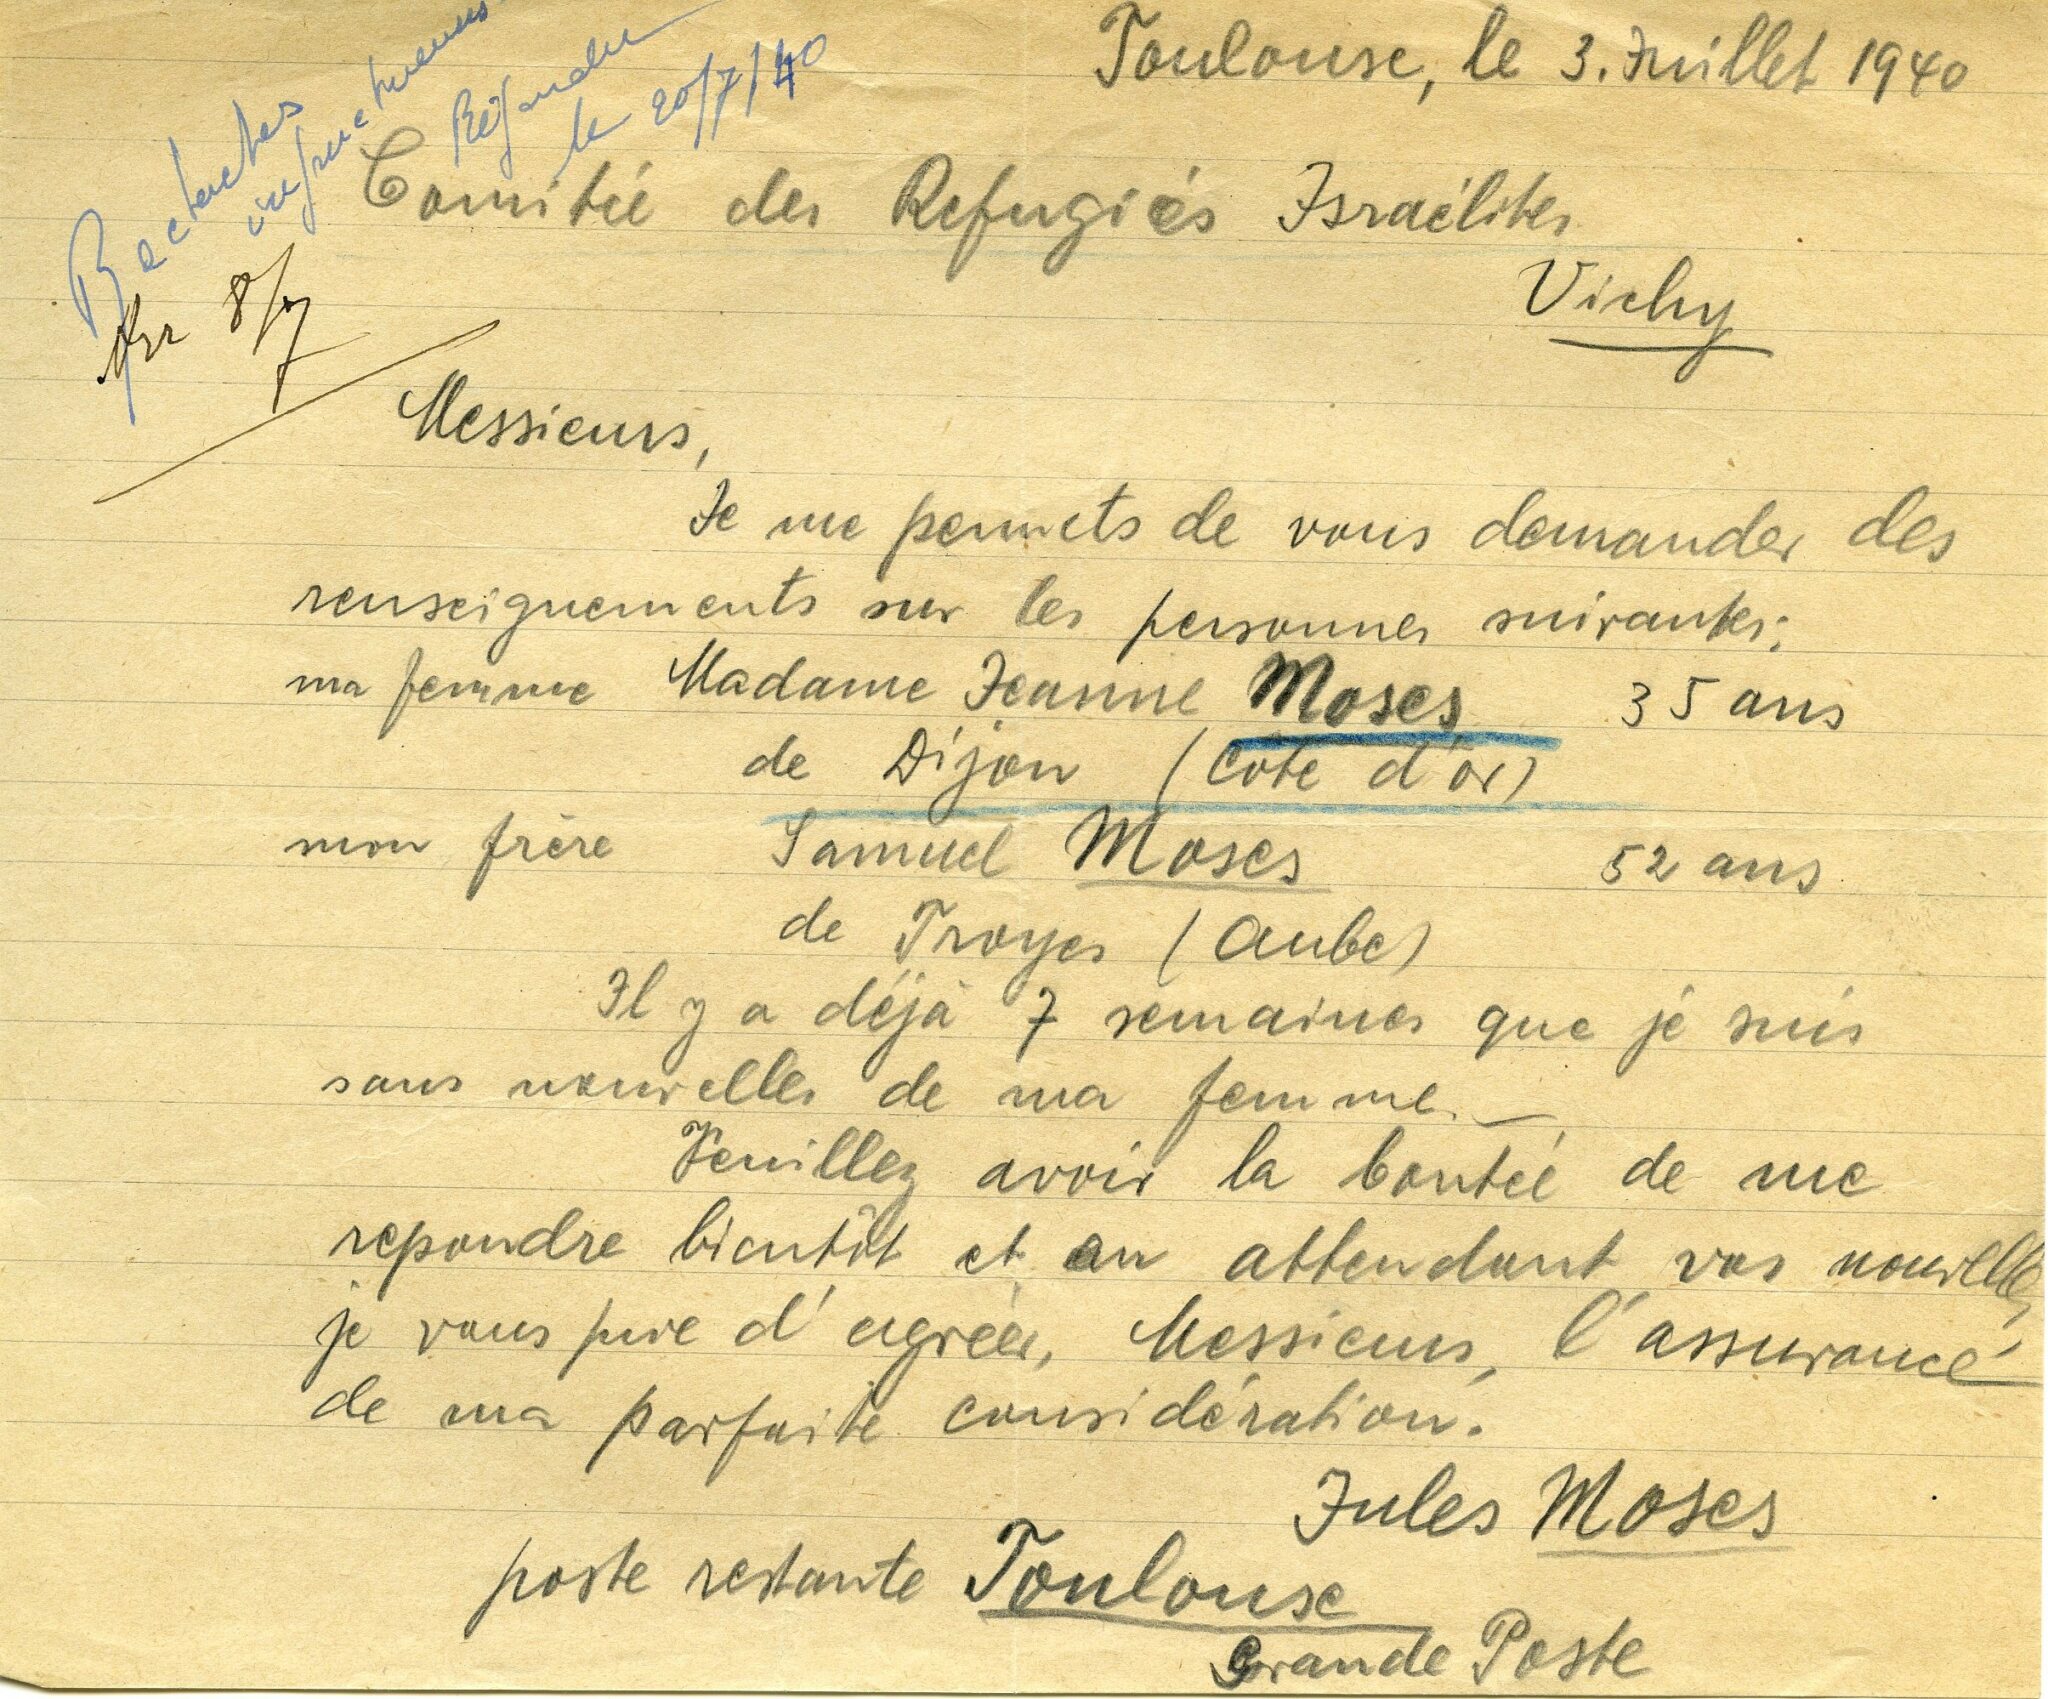 Toulouse, le 3. Juillet 1940
Recherches
infructueuses
Répondu
le 20/7/40
8/7
Comitée des Refugiés Israélites
Vichy
Messieurs,
Je me permets de vous demander des
renseignements sur les personnes suivantes:
ma femme Madame Jeanne Moses 35 ans
de Dijon (Côte d'or)
mon frère Samuel Moses 52 ans
de Troyes (Aube)
Il y a déjà 7 semaines que je suis
sans nouvelles de ma femme. —
Veuillez avoir la bontée de me
repondre bientôt et en attendant vos nouvelles,
je vous prie d'agréer, Messieurs, l'assurance
de ma parfaite considération.
Jules Moses
poste restante Toulouse
Grande Poste